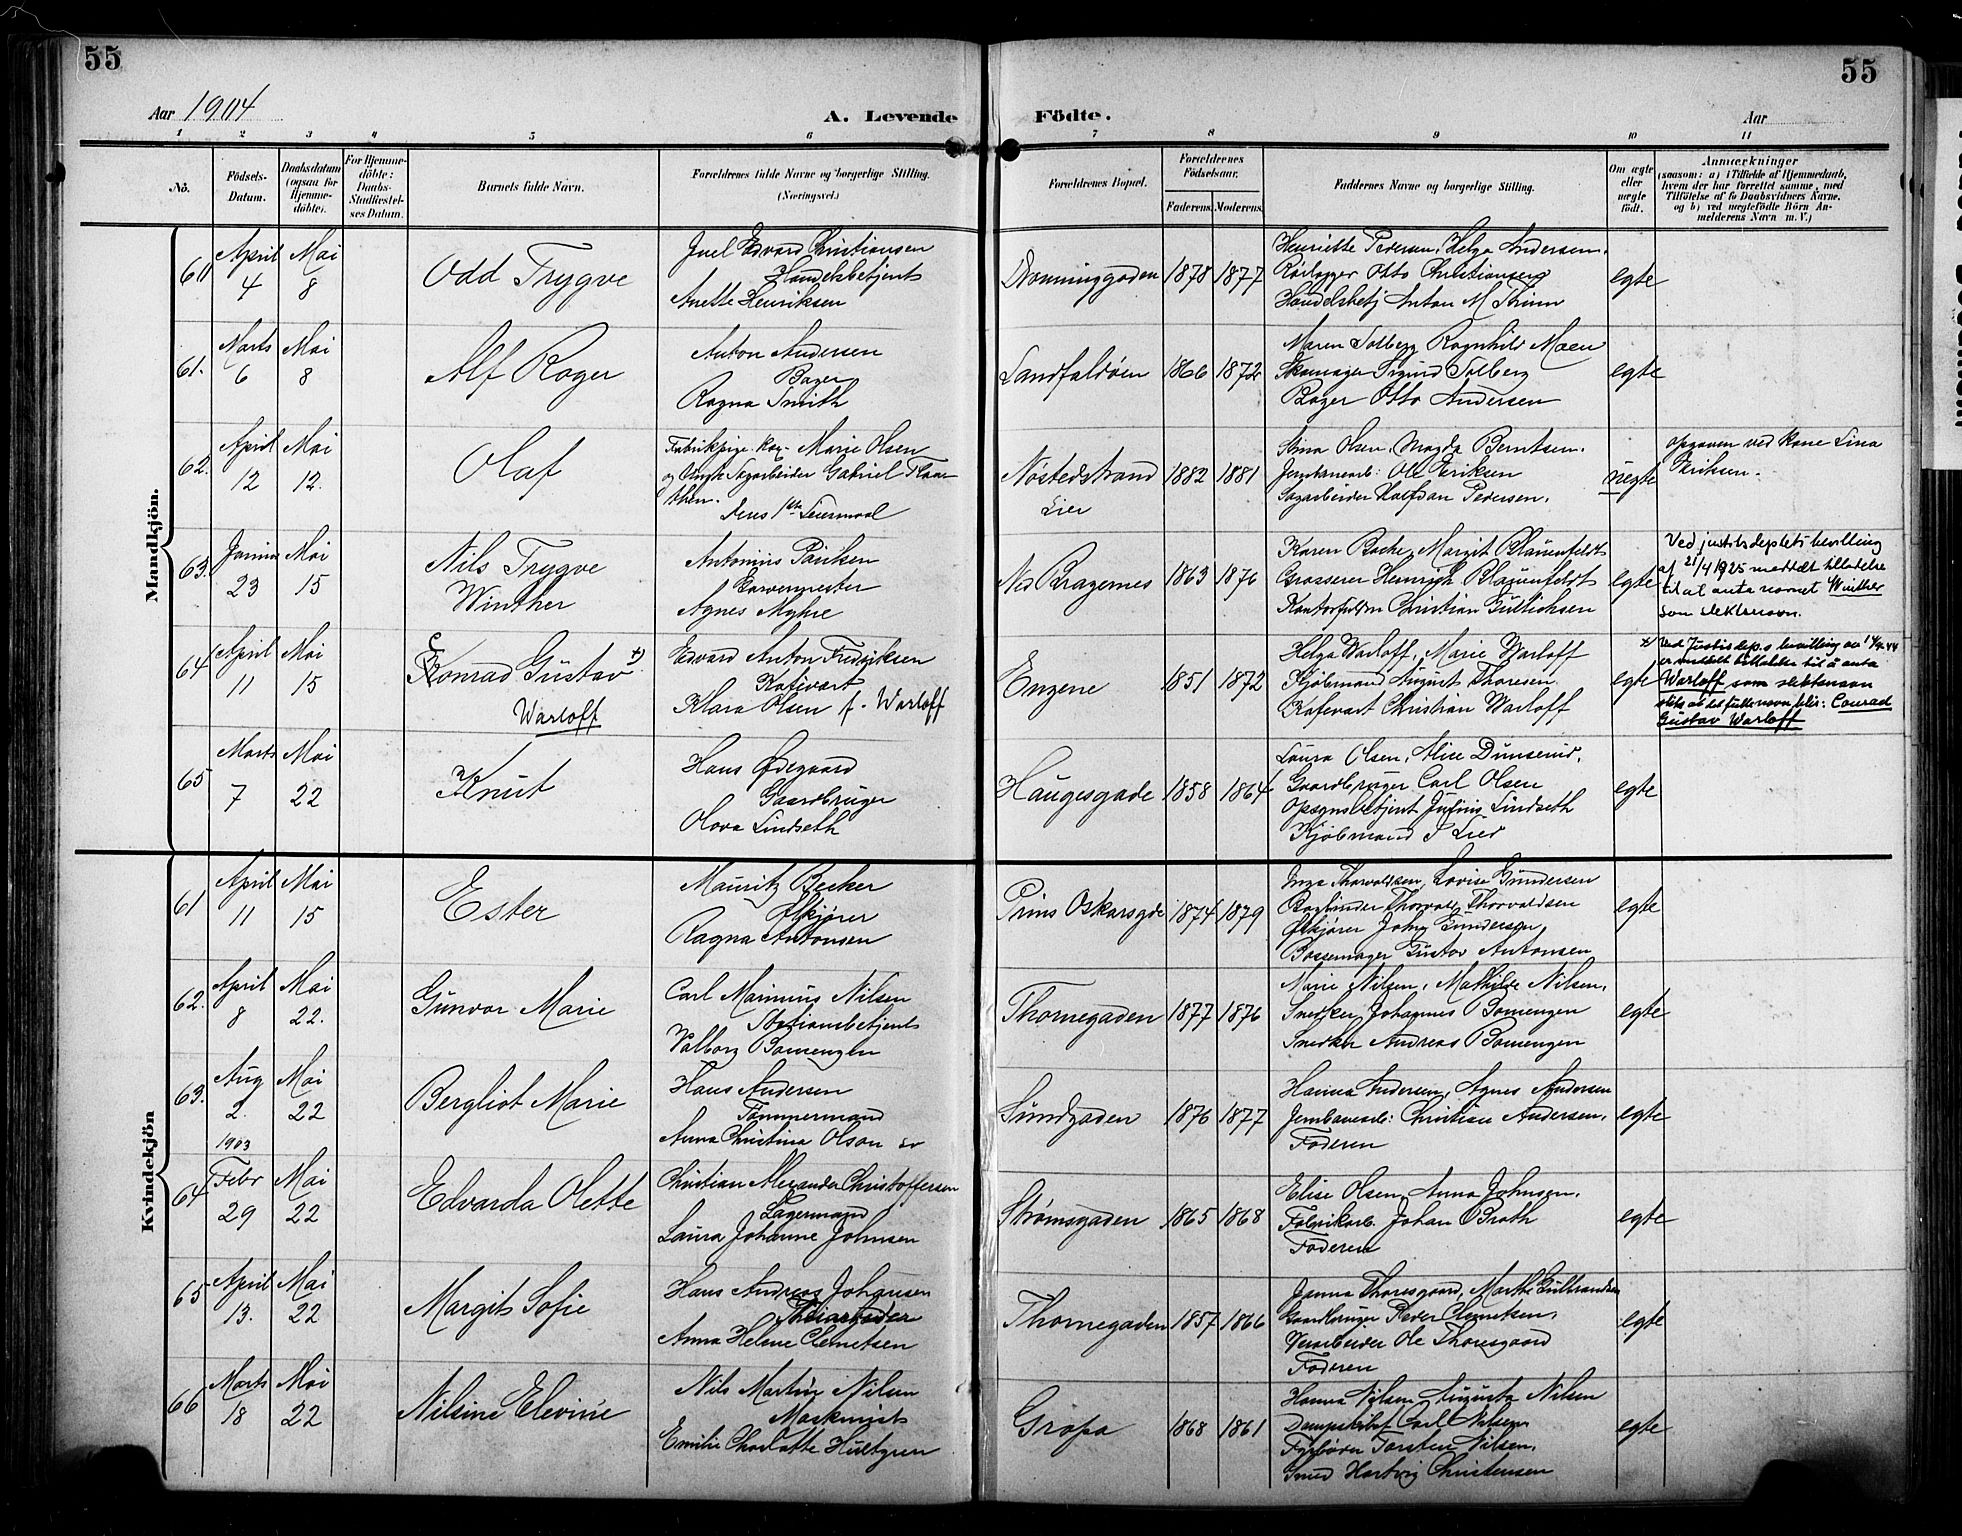 55
55
Aar 1904
A. Levende
Födte.
Aar
1 2 3 4 5 6 7 8 9 10 11
No.
Födsels-Datum.
Daabsdatum (ogsaa for Hjemme-döbte).
For Hjemme-döbte: Daabs-Stadfæstel-ses Datum.
Barnets fulde Navn.
Forældrenes fulde Navne og borgerlige Stilling. (Næringsvei.)
Forældrenes Bopæl.
Forældrenes Födselsaar.
Faderens. Moderens.
Faddernes Navne og borgerlige Stilling.
Om ægte eller uægte født.
Anmærkninger
(saasom: a) i Tilfælde af Hjemmedaab, hvem der har forrettet samme, med Tilföielse af to Daabsvidners Navne, og b) ved uægtefödte Börn An-melderens Navn m. V.)
Mandkjön.
April 4 Mai 8
Odd Trygve
Juel Edvard Christiansen
Handelsbetjent
Anette Henriksen
Dronninggaden 1878 1877
Henriette Pedersen, Helga Andersen,
Otto Christiansen
Handelsbetj Anton M Thinn
egte
61. Marts 6 Mai 8
Alf Roger
Anton Andersen
Bager
Ragna Smith
Landfaldöen 1866 1872
Maren Solberg Ragnhild Moen
Skomager Sigurd Solberg
Bager Otto Andersen
egte
62. April 12 Mai 12.
Olaf
Fabrikpige Marie Olsen
og Sagarbeider Gabriel
Deres 1ste Leiermaal
Nøstedstrand
Lier
1882 1881
Stina Olsen, Magda Berntsen,
Jernbanearb: Ole Eriksen
Sagarbeider Halfdan Pedersen.
uegte
opgaven ved Kone Lina
Eriksen.
63. Januar 23 Mai 15
Nils Trygve
Winther
Antonius Paulsen
Garvermester
Agnes Myhre
Nd Bragernes 1863 1876
Karen Bache, Margit Blauenfeldt
Grosserer Henrich Blauenfeldt
Christian Gullichsen
egte
Ved justitsdeptets bevilling
af 21/4 1925 meddelt tilladelse
til at anta navnet Winther
som slektsnavn.
64 April 11 Mai 15
C
Konrad Gustav x)
Warloff
Edvard Anton Fredriksen
Kafévært
Klara Olsen f. Warloff
Engene 1851 1872
Helga Warloff, Marie Warloff
Kjöbmand August Thoresen
Kafevært Christian Warloff
egte
x) Ved Justisdep.s bevilling av
er meddelt tilladelse til å anta
Warloff som slektsnavn
slik at det fulle navn blir: Conrad
Gustav Warloff
65 Marts 7 Mai 22
Knut
Hans Ødegaard
Gaardbruger
Olava Lindseth
Haugesgade 1858 1864
Laura Olsen, Alise
Gaardbruger Carl Olsen
Opsynsbetjent Julius Lindseth
Kjöbmand
egte
Kvindekjön
61 April 11 Mai 15
Ester
Mauritz Becker
Ølkjører
Ragna Antonsen
Prins Oskarsgde 1874 1879
Inga Thorvaldsen, Lovise Gundersen
Thorvald Thorvaldsen
Ølkjører John Gundersen
Bøssemager Gustav Antonsen
egte
62. April 8 Mai 22.
Gunvor Marie
Carl Marinius Nilsen
Stationsbetjent
Valborg Bomengen
Thornegaden 1877 1876
Marie Nilsen, Mathilde Nilsen,
Snedker Johannes Bomengen
Snedker Andreas Bomengen
egte
63. Aug 2. 1903 Mai 22
Bergliot Marie
Hans Andersen
Tømmermand
Anna Christina Olson
Sundgaden 1876 1877
Hanna Andersen, Agnes Andersen
Jernbanearb: Christian Andersen,
Faderen
egte
64 Febr 29 Mai 22
Edvarda Olette
Christian Alexander Christoffersen
Lagermand
Laura Johanne Johnsen
Strømsgaden 1865 1868
Elise Olsen, Anna Johnsen,
Fabrikarb. Johan Brath
Faderen
egte
65 April 13. Mai 22
Margit Sofie
Hans Andreas Johansen
Anna Helene Clemetsen
Thornegaden 1857 1866
Janna Thoresgaard, Marthe Gulbrandsen
Gaardbruger Peder Clemetsen,
Ole Thoresgaard
Faderen
egte
66 Marts 18 Mai 22
Nilsine Elevine
Nils Martin Nilsen
Maskinist
Emilie Charlotte Hultgren
Grofsa 1868 1861
Hanna Nilsen, Augusta Nilsen
Carl Nilsen
Fyrbøder Torsten Nilsen,
Smed Hartvig Christensen
egte